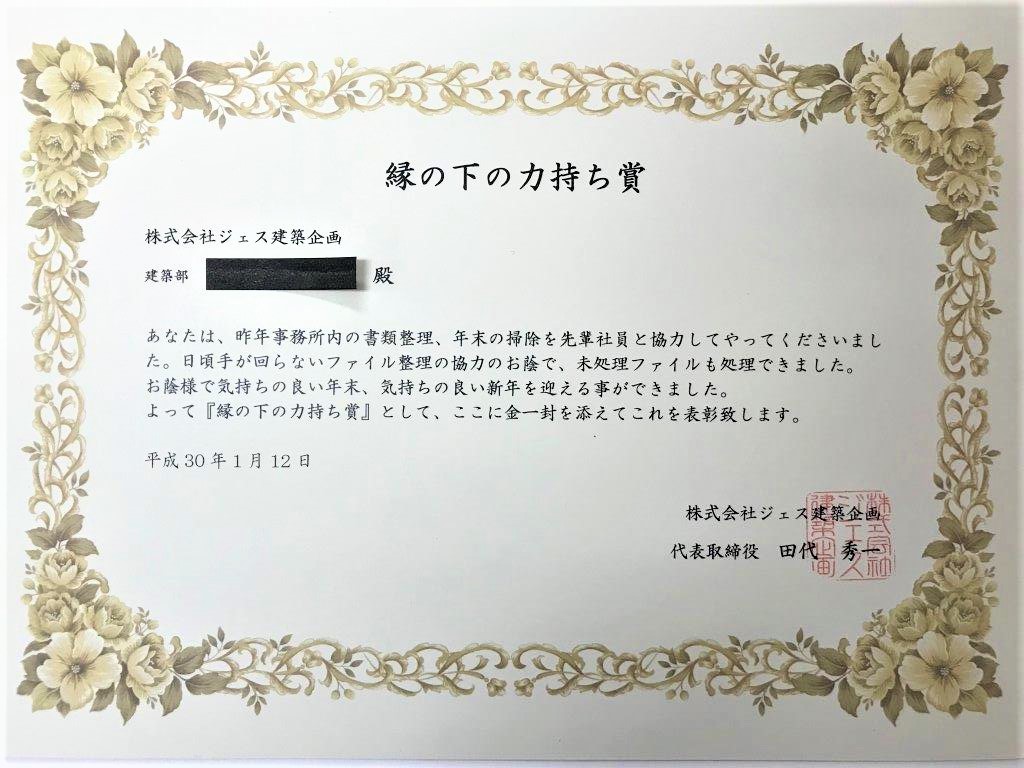 縁の下の力持ち賞
株式会社ジェス建築企画
建築部 殿
あなたは、昨年事務所内の書類整理、年末の掃除を先輩社員と協力してやってくださいまし
た。日頃手が回らないファイル整理の協力のお蔭で、未処理ファイルも処理できました。
お蔭様で気持ちの良い年末、気持ちの良い新年を迎える事ができました。
よって『縁の下の力持ち賞』として、ここに金一封を添えてこれを表彰致します。
平成30年1月12日
株式会社ジェス建築企画
代表取締役 田代 秀一
株式会社
ジェス
建築企画